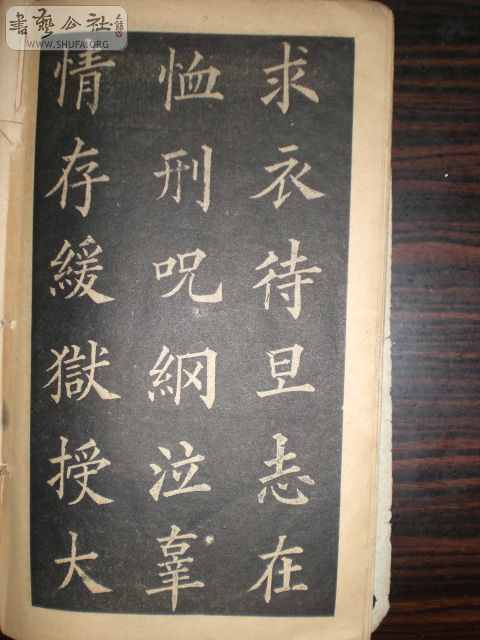 書藝公社
WWW.SHUFA.ORG
求衣待旦志在
恤刑呪網泣辜
情存緩獄授大